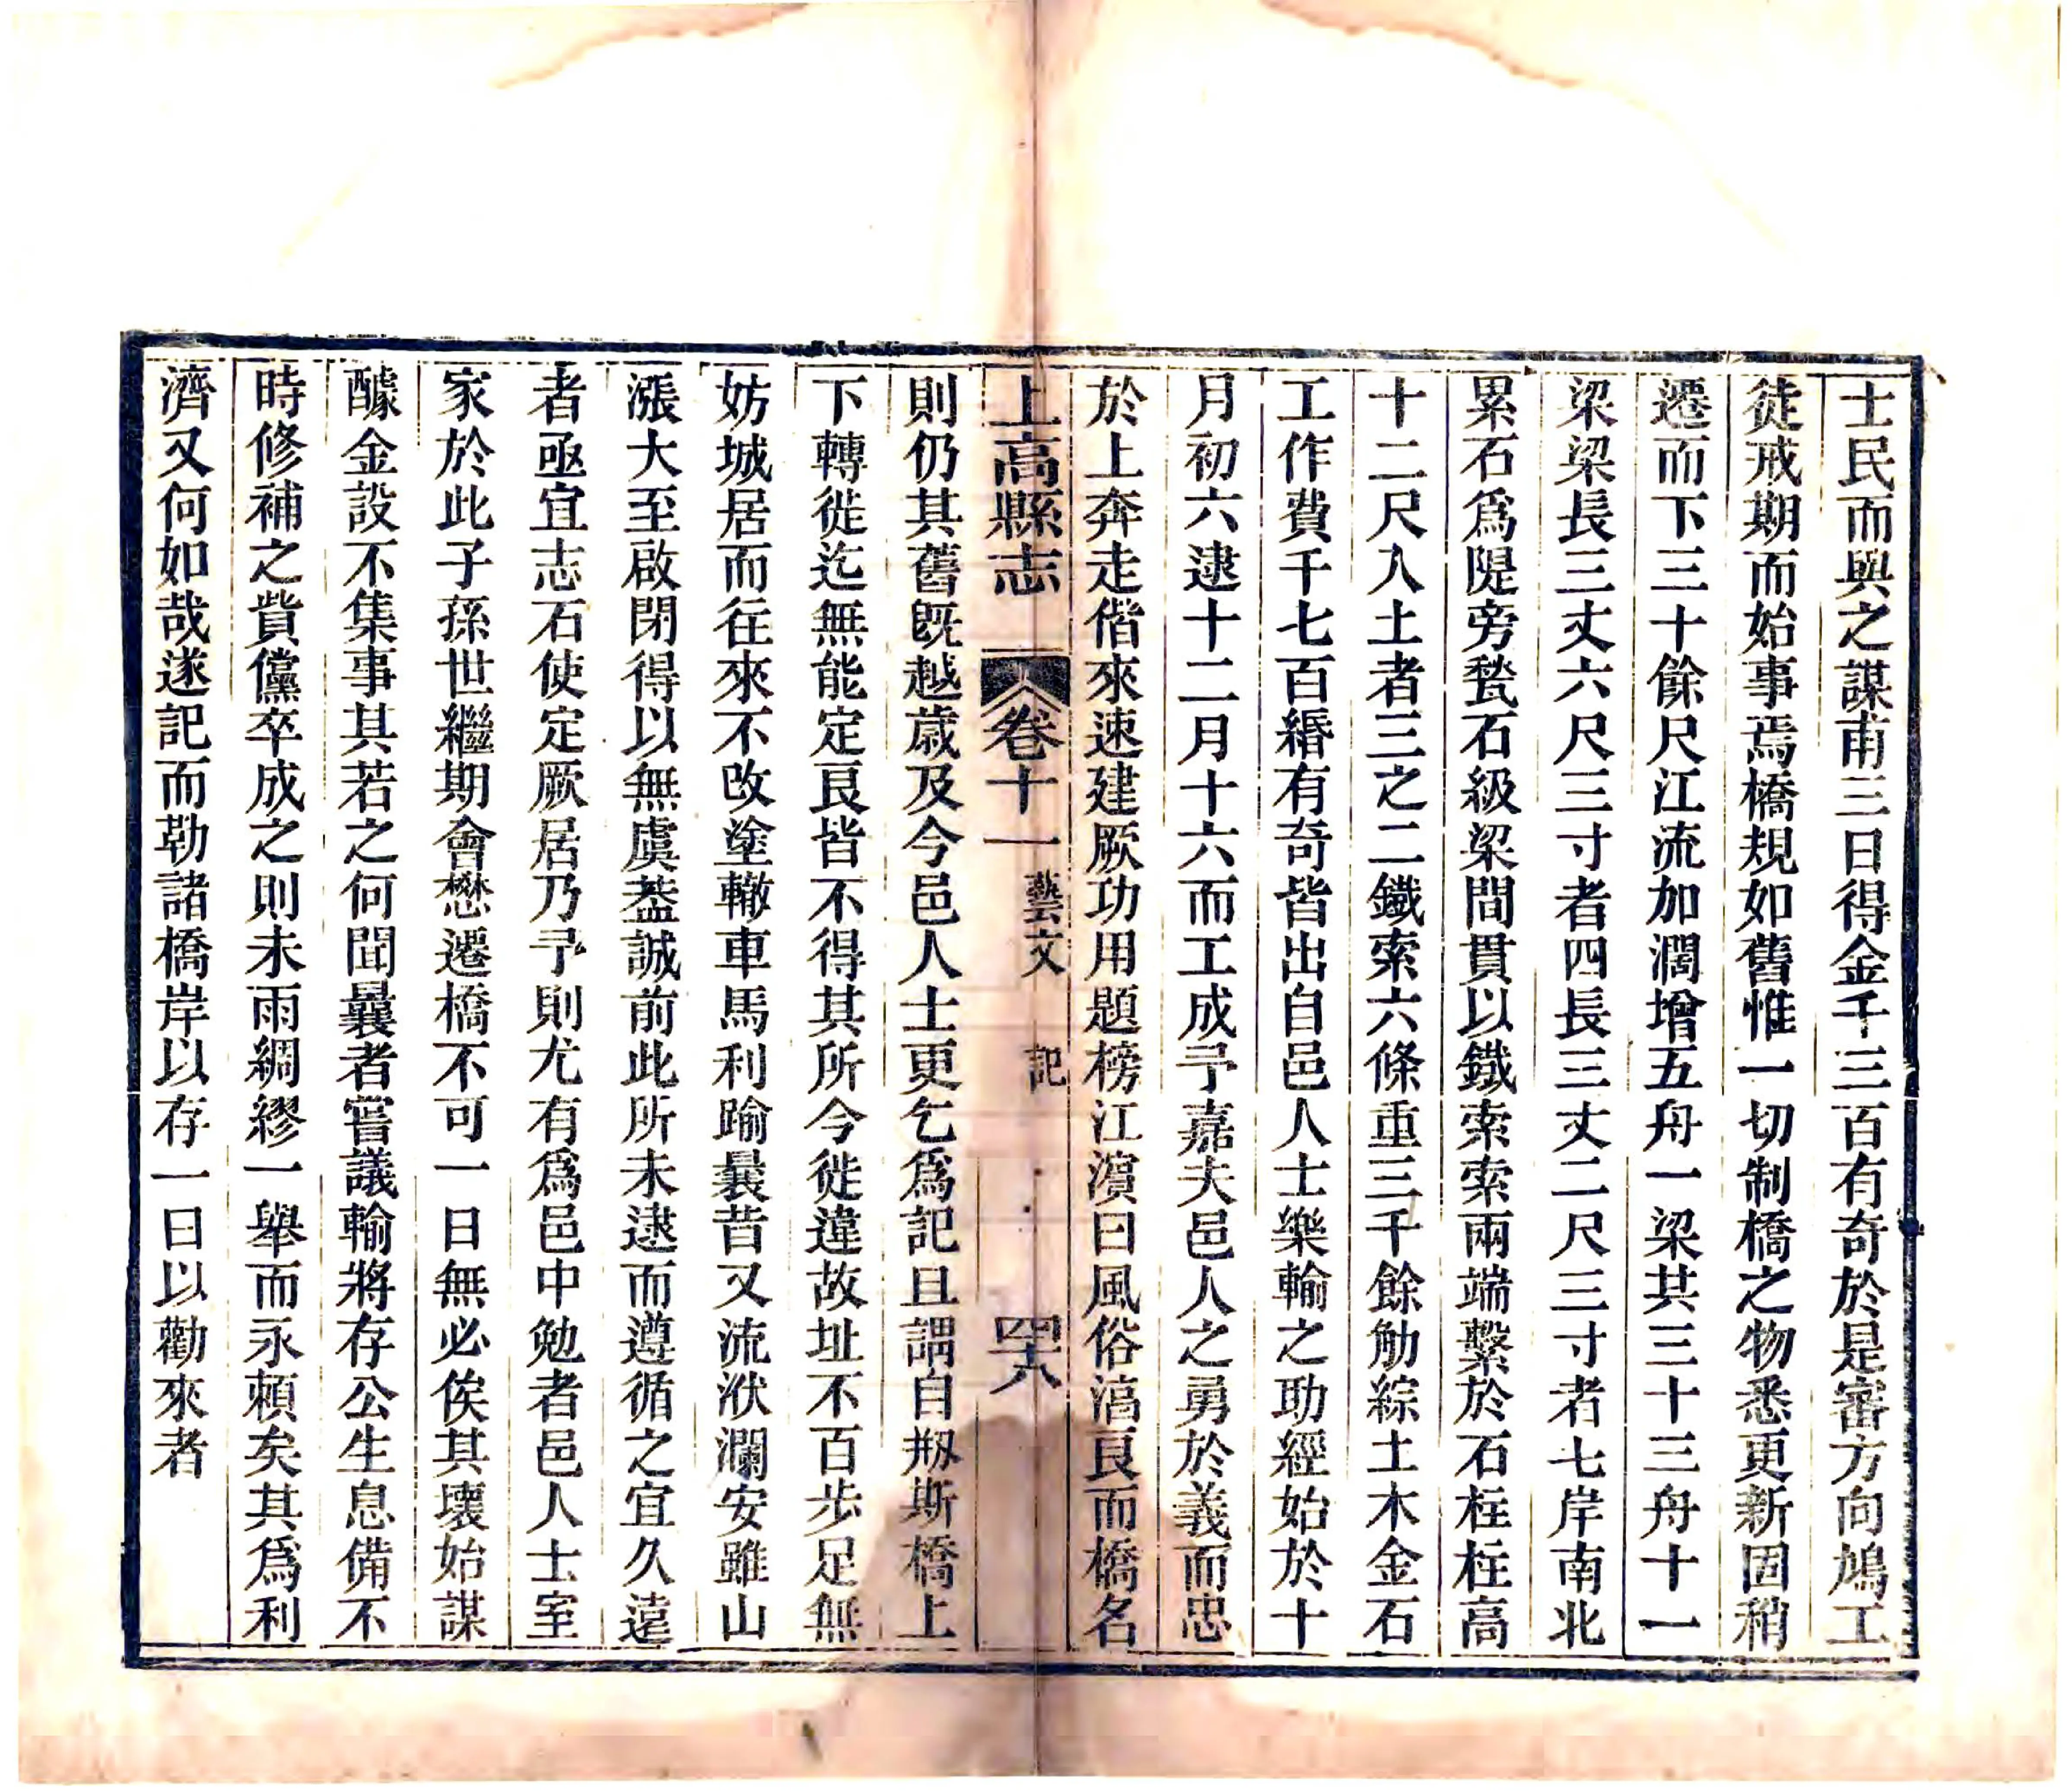 士民而與之謀甫三日得金千三百有奇於是審方向鳩工
徒戒期而始事焉橋規如舊惟一切制橋之物悉更新固稍
遷而下三十餘尺江流加濶增五舟一梁共三十三舟十一
梁梁長三丈六尺三寸者四長三丈二尺三寸者七岸南北
累石爲隄旁甃石級梁間貫以鐵索索兩端繫於石柱柱高
十二尺入土者三之二鐵索六條重三千餘觔綜土木金石
工作費千七百緡有奇皆出自邑人士樂輸之助經始於十
月初六逮十二月十六而工成予嘉夫邑人之勇於義而忠
於上奔走偕來速建厥功用題榜江濱曰風俗滈良而橋名
上高縣志 卷十一 藝文 記 四十八
則仍其舊旣越歲及今邑人士更乞爲記且謂自剏斯橋上
下轉徙迄無能定艮皆不得其所今徙違故址不百步足無
妨城居而往來不改塗轍車馬利踰曩昔又流洑瀾安雖山
漲大至啟閉得以無虞葢誠前此所未逮而遵循之宜久遠
者亟宜志石使定厥居乃予則尤有爲邑中勉者邑人士室
家於此子孫世繼期會懋遷橋不可一日無必俟其壞始謀
醵金設不集事其若之何聞曩者嘗議輸將存公生息備不
時修補之貲儻卒成之則未雨綢繆一舉而永賴矣其爲利
濟又何如哉遂記而勒諸橋岸以存一日以勸來者